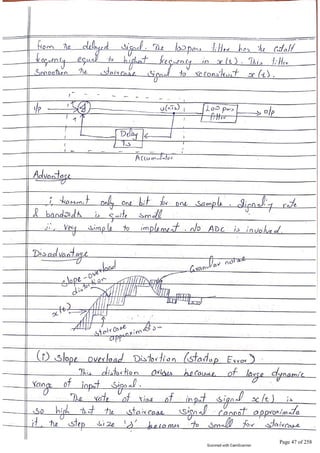 from the delayed signal. The lowpass filter has the cutoff
frequency equal to highest frequency in x(t). This filter
smoothen the staircase signal to reconstruct x(t).
i/p
u(nTs)
Low pass
filter
o/p
Delay
Ts
Accumulator
Advantage
i, transmit only one bit for one sample. signaling rate
& bandwidth is quite small
ii, very simple to implement. No ADC is involved.
Disadvantage
slope-overload
distortion
Granular noise
x(t)
staircase
approximatio-
(i) Slope overload Distortion (Startup Error)
This distortion arises because of large dynamic
range of input signal.
The rate of rise of input signal x(t) is
so high that the staircase signal cannot approximate
it, the step size 'δ' becomes to small for staircase
Scanned with CamScanner
Page 47 of 258